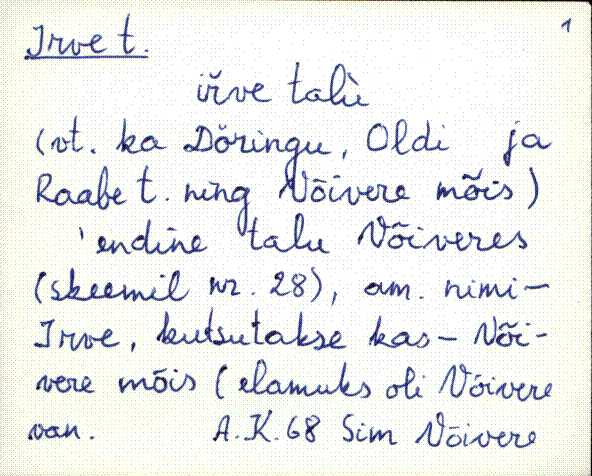 1
Irve t.
iřve talù
(vt. ka Döringu, Oldi ja
Raabe t. ning Võivere mõis)
'endine talu Võiveres
(skeemil nr. 28), am. nimi-
Irve, kutsutakse kas- Või-
vere mõis (elamuks oli Võivere
van. A.K. 68 Sim Võivere